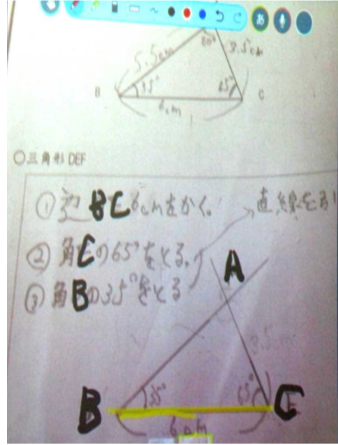 5.5cm
80°
3.5cm
B
35°
65°
C
6cm
○三角形DEF
① 辺BC 6cmをかく。
直線を引
② 角Cの65°をとる。
③ 角Bの35°をとる
A
3.5cm
35°
65°
B
C
6cm